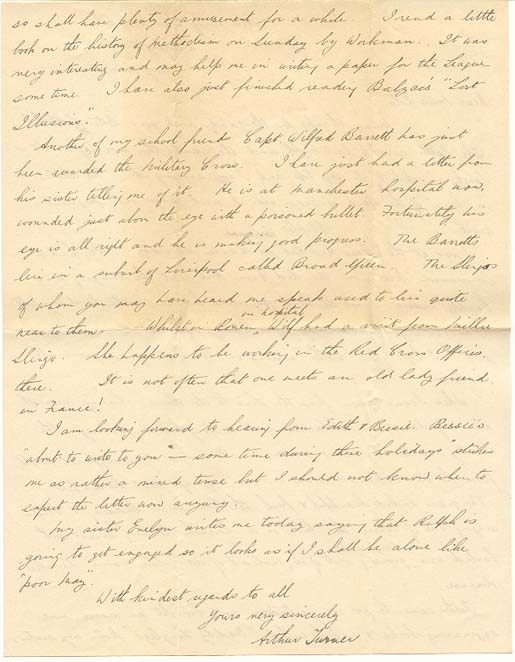 so shall have plenty of amusement for a while I read a little
book on the history of Methodism on Sunday by Workman. It was
very interesting and may help me in writing a paper for the League
some time. I have also just finished reading Balzac's "Lost
Illusions."
Another of my school friends Capt. Wilfred Barrett has just
been awarded the Military Cross. I have just had a letter from
his sister telling me of it. He is at Manchester, hospital now,
wounded just above the eye with a poisoned bullet. Fortunately his
eye is all right and he is making good progress. The Barretts
live in a suburb of Liverpool called Broad Green. The Sligos
of whom you may have heard me speak used to live quite
near to them. Whilst in Rouen in hospital Wilf had a visit from Millie
Sligo. She happens to be working in the Red Cross Offices
there. It is not often that one meets an old lady friend
in France!
I am looking forward to hearing from Edith & Bessie. Bessie's
"about to write to you" – some time during these holidays" strikes
me as rather a mixed tense but I should not know when to
expect the letter now anyway.
My sister Evelyn writes me today saying that Ralph is
going to get engaged so it looks as if I shall be alone like
"poor May".
With kindest regards to all
Yours very sincerely
Arthur Turner